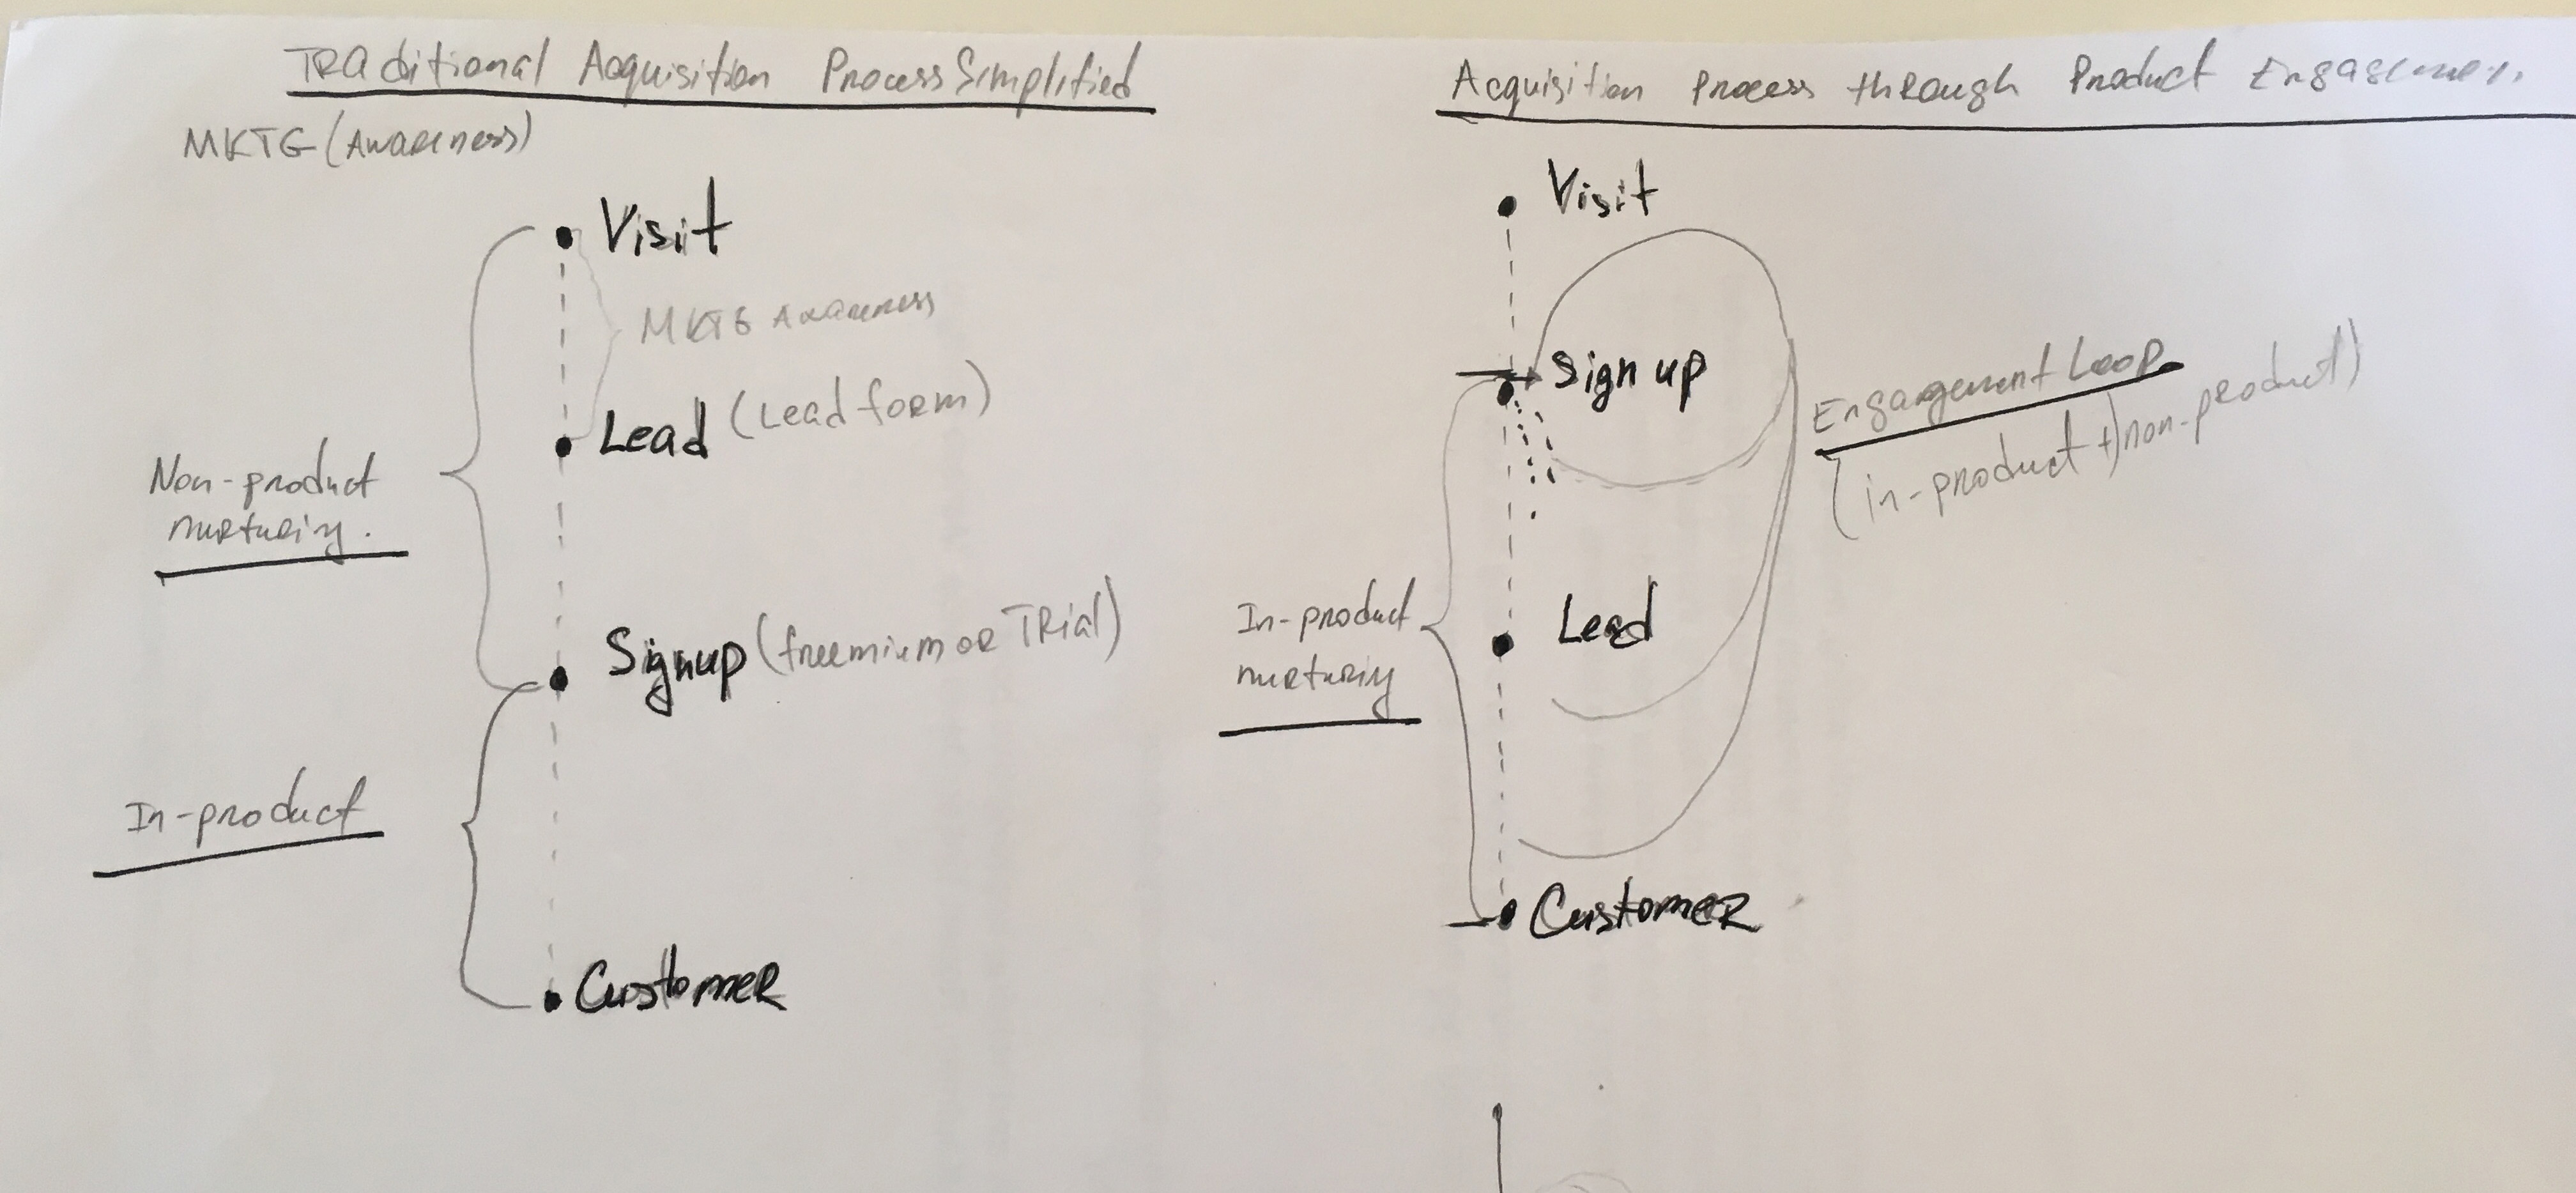 TRAditional Acquisition Process Simplified
MKTG (Awareness)
Visit
MKTG Awareness
Lead (Lead form)
Non-product
nurturing.
Signup (freemium or TRial)
In-product
Customer
Acquisition Process through Product Engagement
Visit
Sign up
Engagement Loop
(in-product +) non-product)
Lead
In-product
nurturing
Customer